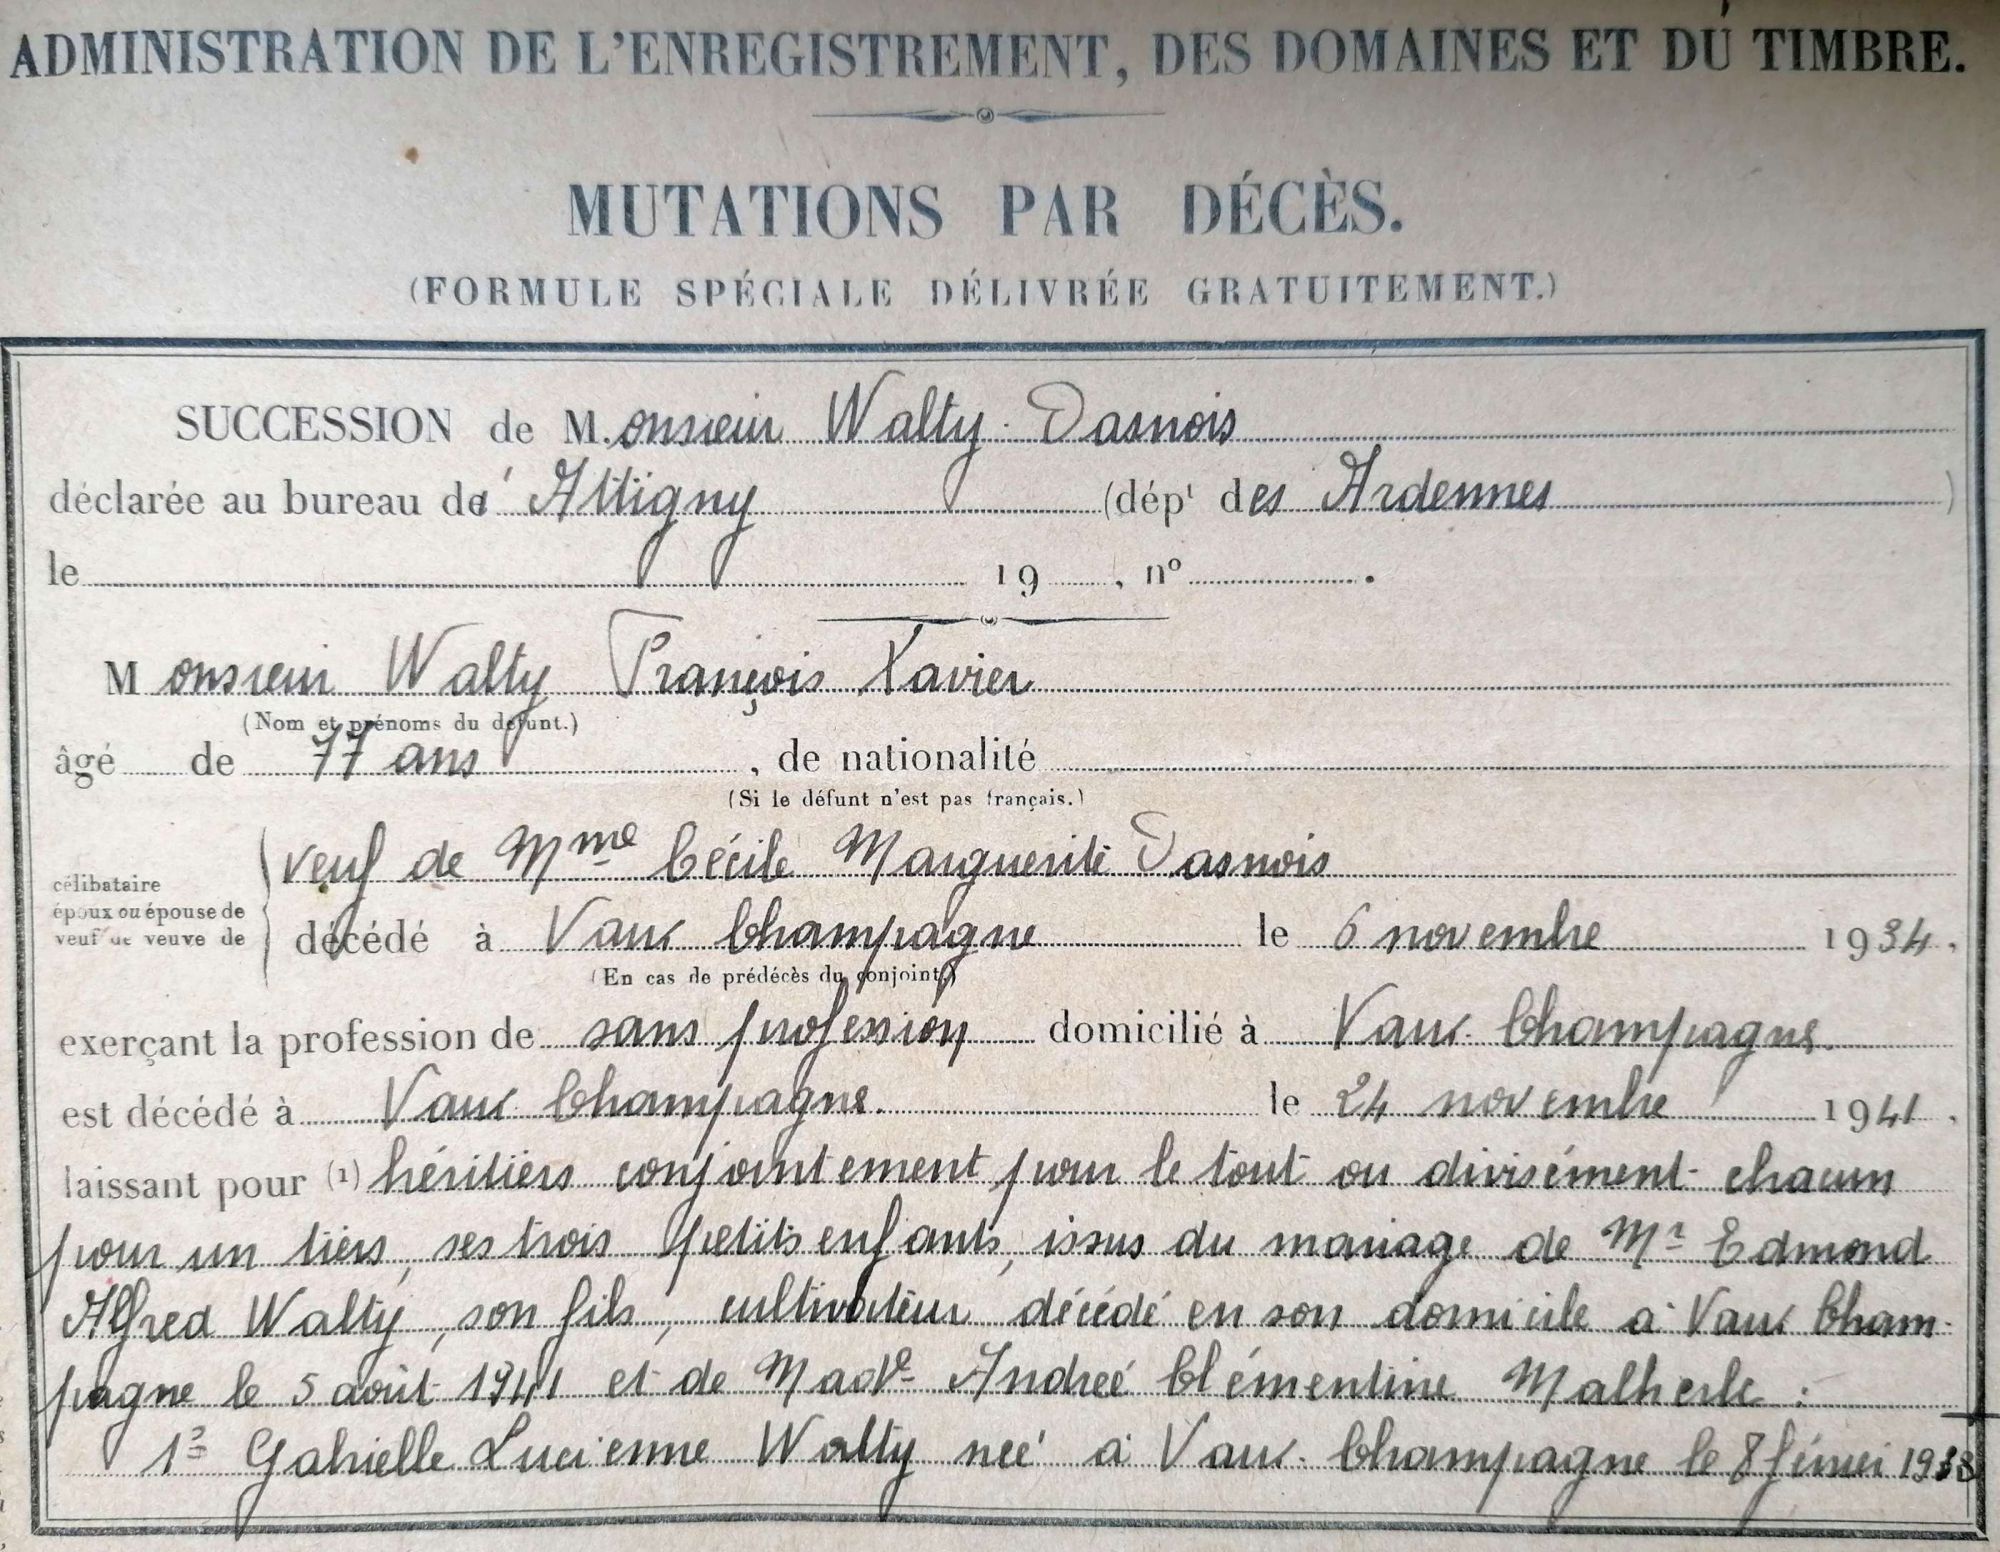 ADMINISTRATION DE L'ENREGISTREMENT, DES DOMAINES ET DU TIMBRE.
MUTATIONS PAR DÉCÈS.
(FORMULE SPÉCIALE DÉLIVRÉE GRATUITEMENT.)
SUCCESSION de M.onsieur Walty-Dasnois
déclarée au bureau d' Attigny (dépt des Ardennes )
le 19 , no .
Monsieur Walty François Xavier
(Nom et prénoms du défunt.)
âgé de 77 ans , de nationalité
(Si le défunt n'est pas français.)
célibataire
époux ou épouse de
veuf de veuve de
veuf de Mme Cécile Marguerite Dasnois
décédé à Vaux Champagne le 6 novembre 1934.
(En cas de prédécès du conjoint.)
exerçant la profession de sans profession domicilié à Vaux-Champagne.
est décédé à Vaux-Champagne. le 24 novembre 1941.
laissant pour (1) héritiers conjointement pour le tout ou divisément chacun
pour un tiers, ses trois petits enfants, issus du mariage de Mr Edmond
Alfred Walty, son fils, cultivateur décédé en son domicile à Vaux Cham-
pagne le 5 août 1941 et de Made Andrée Clémentine Malherbe :
1° Gabrielle Lucienne Walty née à Vaux-Champagne le 8 février